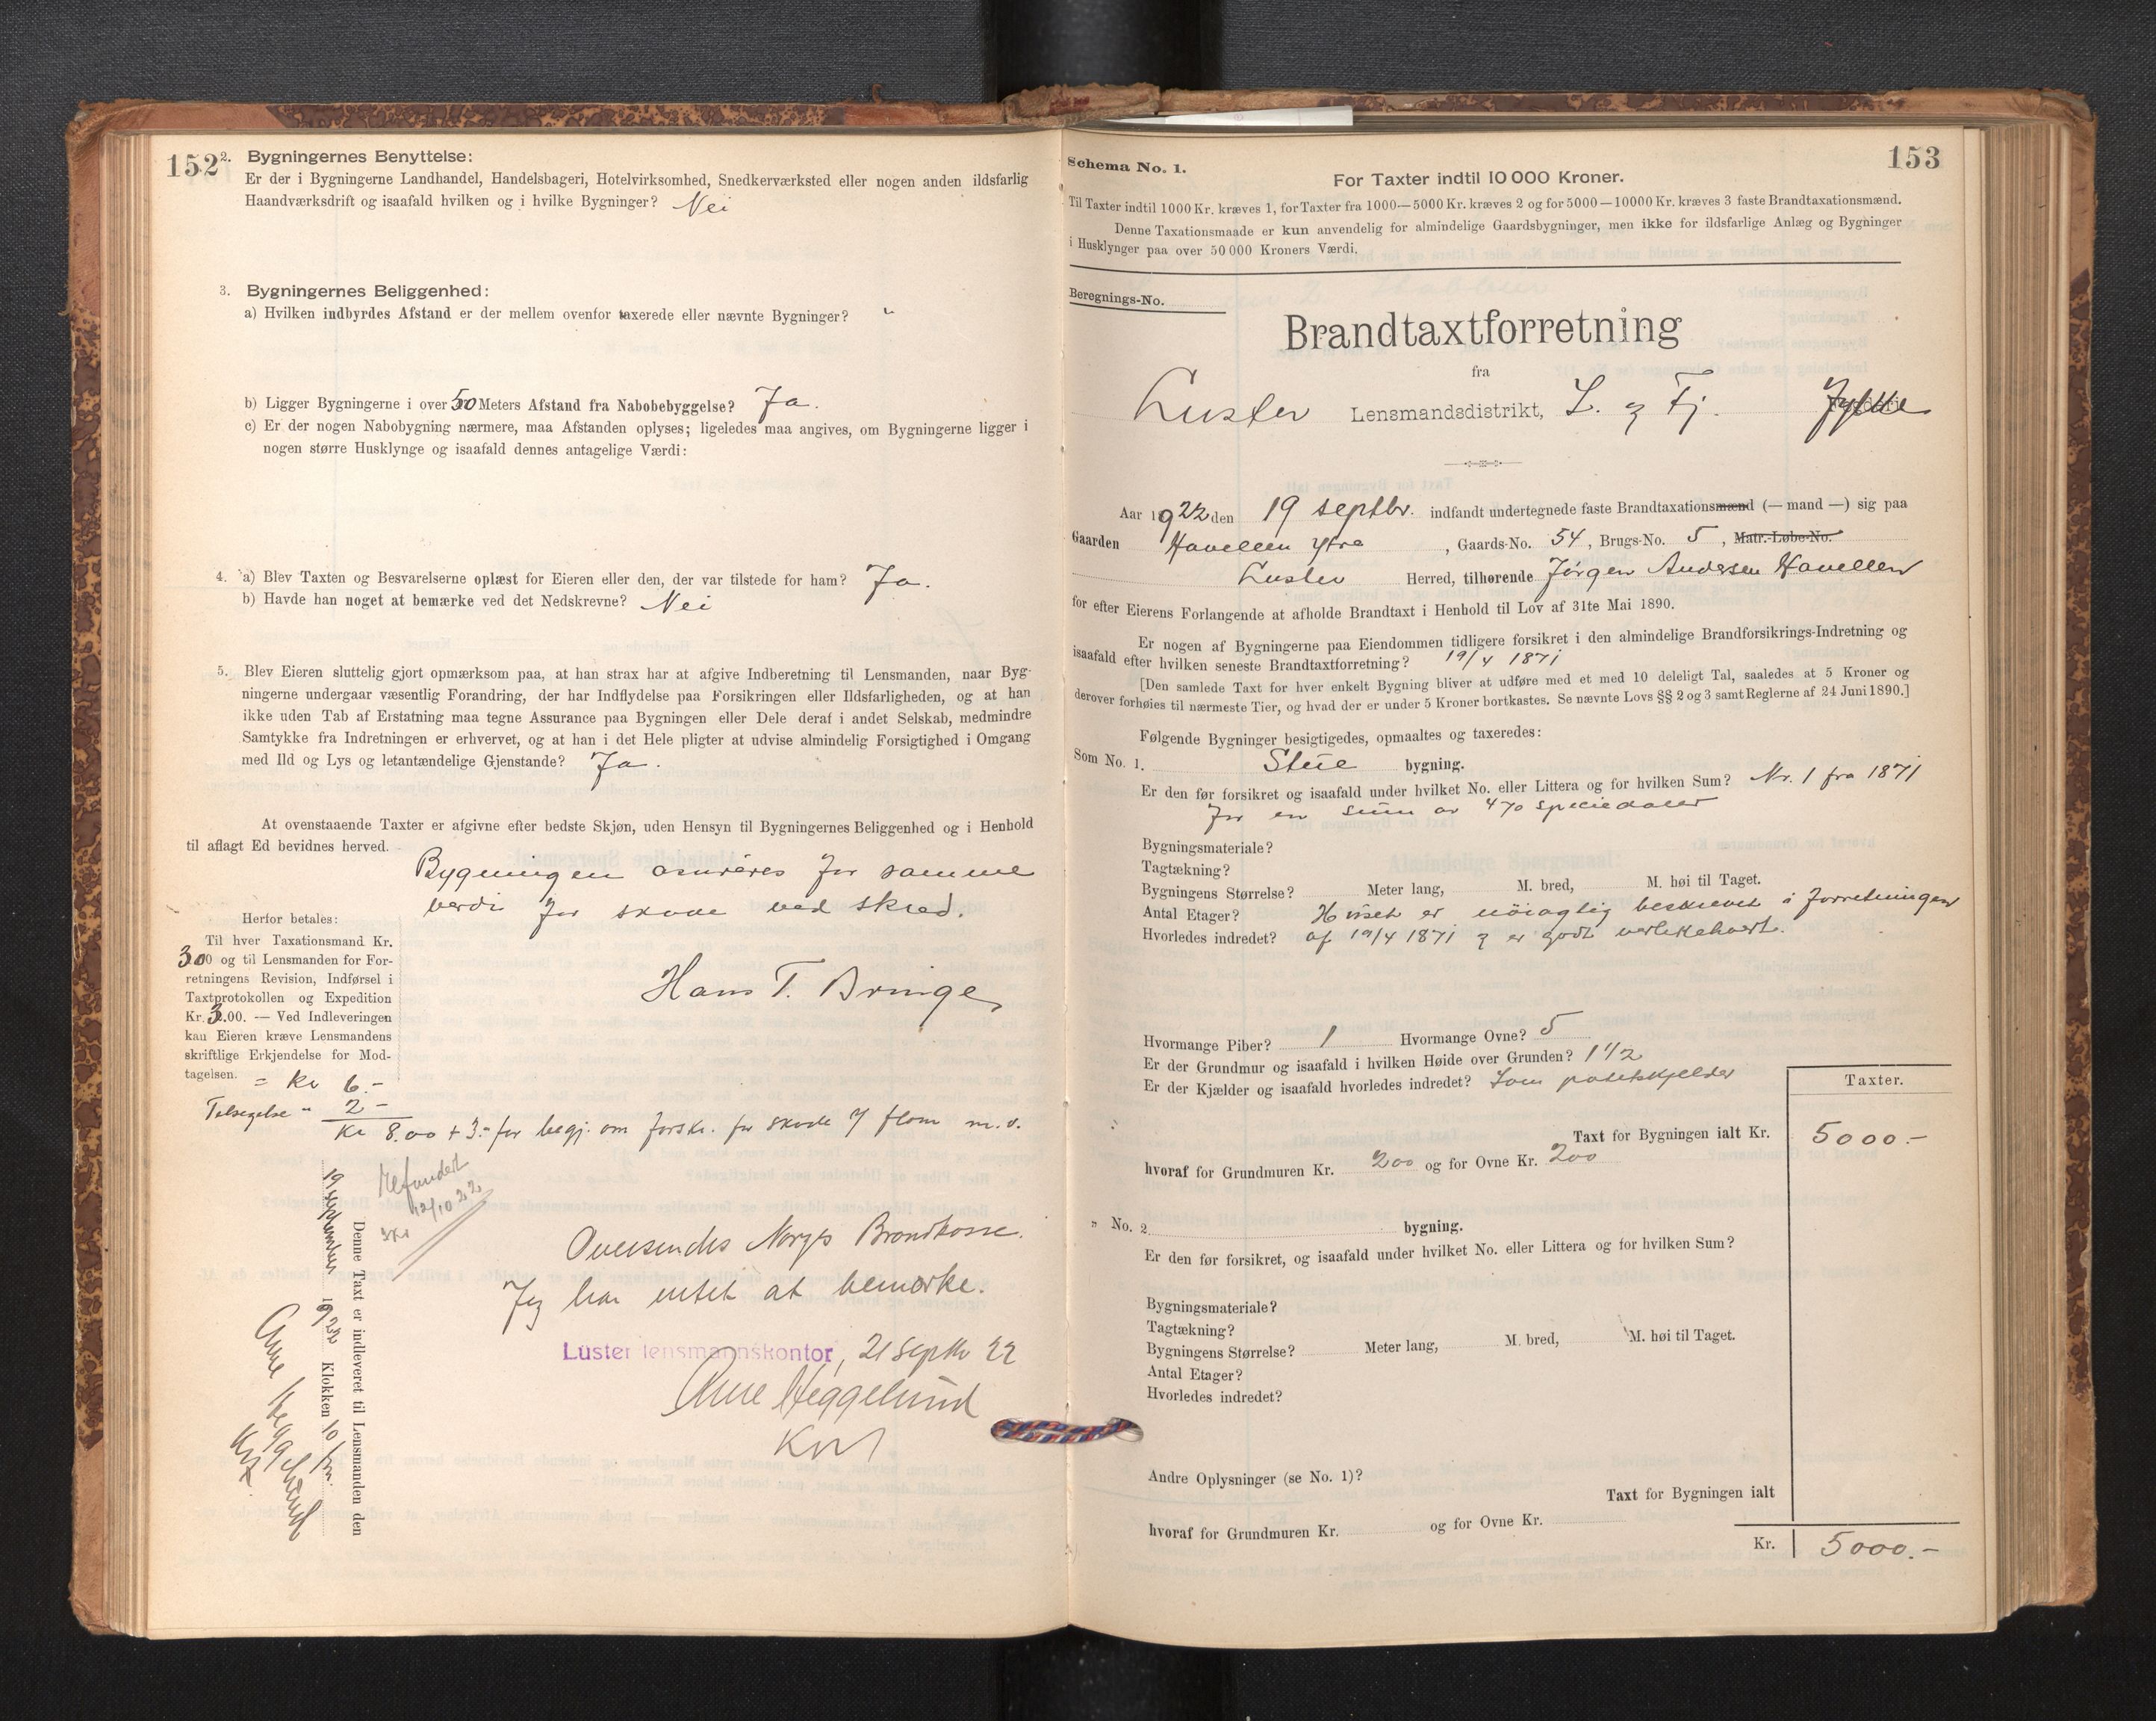 152
2. Bygningernes Benyttelse:
Er der i Bygningerne Landhandel, Handelsbageri, Hotelvirksomhed, Snedkerværksted eller nogen anden ildsfarlig
Haandværksdrift og isaafald hvilken og i hvilke Bygninger? Nei
3. Bygningernes Beliggenhed:
a) Hvilken indbyrdes Afstand er der mellem ovenfor taxerede eller nævnte Bygninger? "
b) Ligger Bygningerne i over 50 Meters Afstand fra Nabobebyggelse? Ja.
c) Er der nogen Nabobygning nærmere, maa Afstanden oplyses; ligeledes maa angives, om Bygningerne ligger i
nogen større Husklynge og isaafald dennes antagelige Værdi:
4. a) Blev Taxten og Besvarelserne oplæst for Eieren eller den, der var tilstede for ham? Ja.
b) Havde han noget at bemærke ved det Nedskrevne? Nei
5. Blev Eieren sluttelig gjort opmærksom paa, at han strax har at afgive Indberetning til Lensmanden, naar Byg-
ningerne undergaar væsentlig Forandring, der har Indflydelse paa Forsikringen eller Ildsfarligheden, og at han
ikke uden Tab af Erstatning maa tegne Assurance paa Bygningen eller Dele deraf i andet Selskab, medmindre
Samtykke fra Indretningen er erhvervet, og at han i det Hele pligter at udvise almindelig Forsigtighed i Omgang
med Ild og Lys og letantændelige Gjenstande? Ja.
At ovenstaaende Taxter er afgivne efter bedste Skjøn, uden Hensyn til Bygningernes Beliggenhed og i Henhold
til aflagt Ed bevidnes herved.
Bygningen asureres for samme
verdi for skade ved skred.
Hans T. Bringe
Herfor betales:
Til hver Taxationsmand Kr.
3.00 og til Lensmanden for For-
retningens Revision, Indførsel i
Taxtprotokollen og Expedition
Kr. 3.00. — Ved Indleveringen
kan Eieren kræve Lensmandens
skriftlige Erkjendelse for Mod-
tagelsen.
= Kr 6.-
Tilsigelse " 2-
Kr 8.00 + 3.- for begj. om forsk. for skade af flom m.v.
Refundert
12/10 22
3 Kr
Denne Taxt er indleveret til Lensmanden den
19 september 1922 Klokken 10 fm.
Arne Heggelund
Kst.
Oversendes Norges Brandkasse.
Jeg har intet at bemerke.
Luster lensmannskontor, 21 septbr 22
Arne Heggelund
Kst
153
Schema No. 1.
For Taxter indtil 10 000 Kroner.
Til Taxter indtil 1000 Kr. kræves 1, for Taxter fra 1000—5000 Kr. kræves 2 og for 5000—10000 Kr. kræves 3 faste Brandtaxationsmænd.
Denne Taxationsmaade er kun anvendelig for almindelige Gaardsbygninger, men ikke for ildsfarlige Anlæg og Bygninger
i Husklynger paa over 50 000 Kroners Værdi.
Beregnings-No.
Brandtaxtforretning
fra
Luster Lensmandsdistrikt, L. og Fj. Fylke
Aar 1922 den 19 septbr. indfandt undertegnede faste Brandtaxationsmænd (— mand —) sig paa
Gaarden Havellen ytre, Gaards-No. 54, Brugs-No. 5, Matr.-Løbe-No.
Luster Herred, tilhørende Jørgen Andersen Havellen
for efter Eierens Forlangende at afholde Brandtaxt i Henhold til Lov af 31te Mai 1890.
Er nogen af Bygningerne paa Eiendommen tidligere forsikret i den almindelige Brandforsikrings-Indretning og
isaafald efter hvilken seneste Brandtaxtforretning? 19/4 1871
[Den samlede Taxt for hver enkelt Bygning bliver at udføre med et med 10 deleligt Tal, saaledes at 5 Kroner og
derover forhøies til nærmeste Tier, og hvad der er under 5 Kroner bortkastes. Se nævnte Lovs §§ 2 og 3 samt Reglerne af 24 Juni 1890.]
Følgende Bygninger besigtigedes, opmaaltes og taxeredes:
Som No. 1. Stue bygning.
Er den før forsikret og isaafald under hvilket No. eller Littera og for hvilken Sum? Nr. 1 fra 1871
for en sum av 470 speciedaler
Bygningsmateriale?
Tagtækning?
Bygningens Størrelse? Meter lang, M. bred, M. høi til Taget.
Antal Etager? Huset er nöiagtig beskrevet i forretningen
Hvorledes indredet? af 19/4 1871 og er godt vedlikeholdt.
Hvormange Piber? 1 Hvormange Ovne? 5
Er der Grundmur og isaafald i hvilken Høide over Grunden? 1 1/2
Er der Kjælder og isaafald hvorledes indredet? Som potetkjelder
Taxter.
Taxt for Bygningen ialt Kr. 5000.-
hvoraf for Grundmuren Kr. 200 og for Ovne Kr. 200
" No. 2. bygning.
Er den før forsikret, og isaafald under hvilket No. eller Littera og for hvilken Sum?
Bygningsmateriale?
Tagtækning?
Bygningens Størrelse? Meter lang, M. bred, M. høi til Taget.
Antal Etager?
Hvorledes indredet?
Andre Oplysninger (se No. 1)?
Taxt for Bygningen ialt
hvoraf for Grundmuren Kr. og for Ovne Kr.
Kr. 5000.-